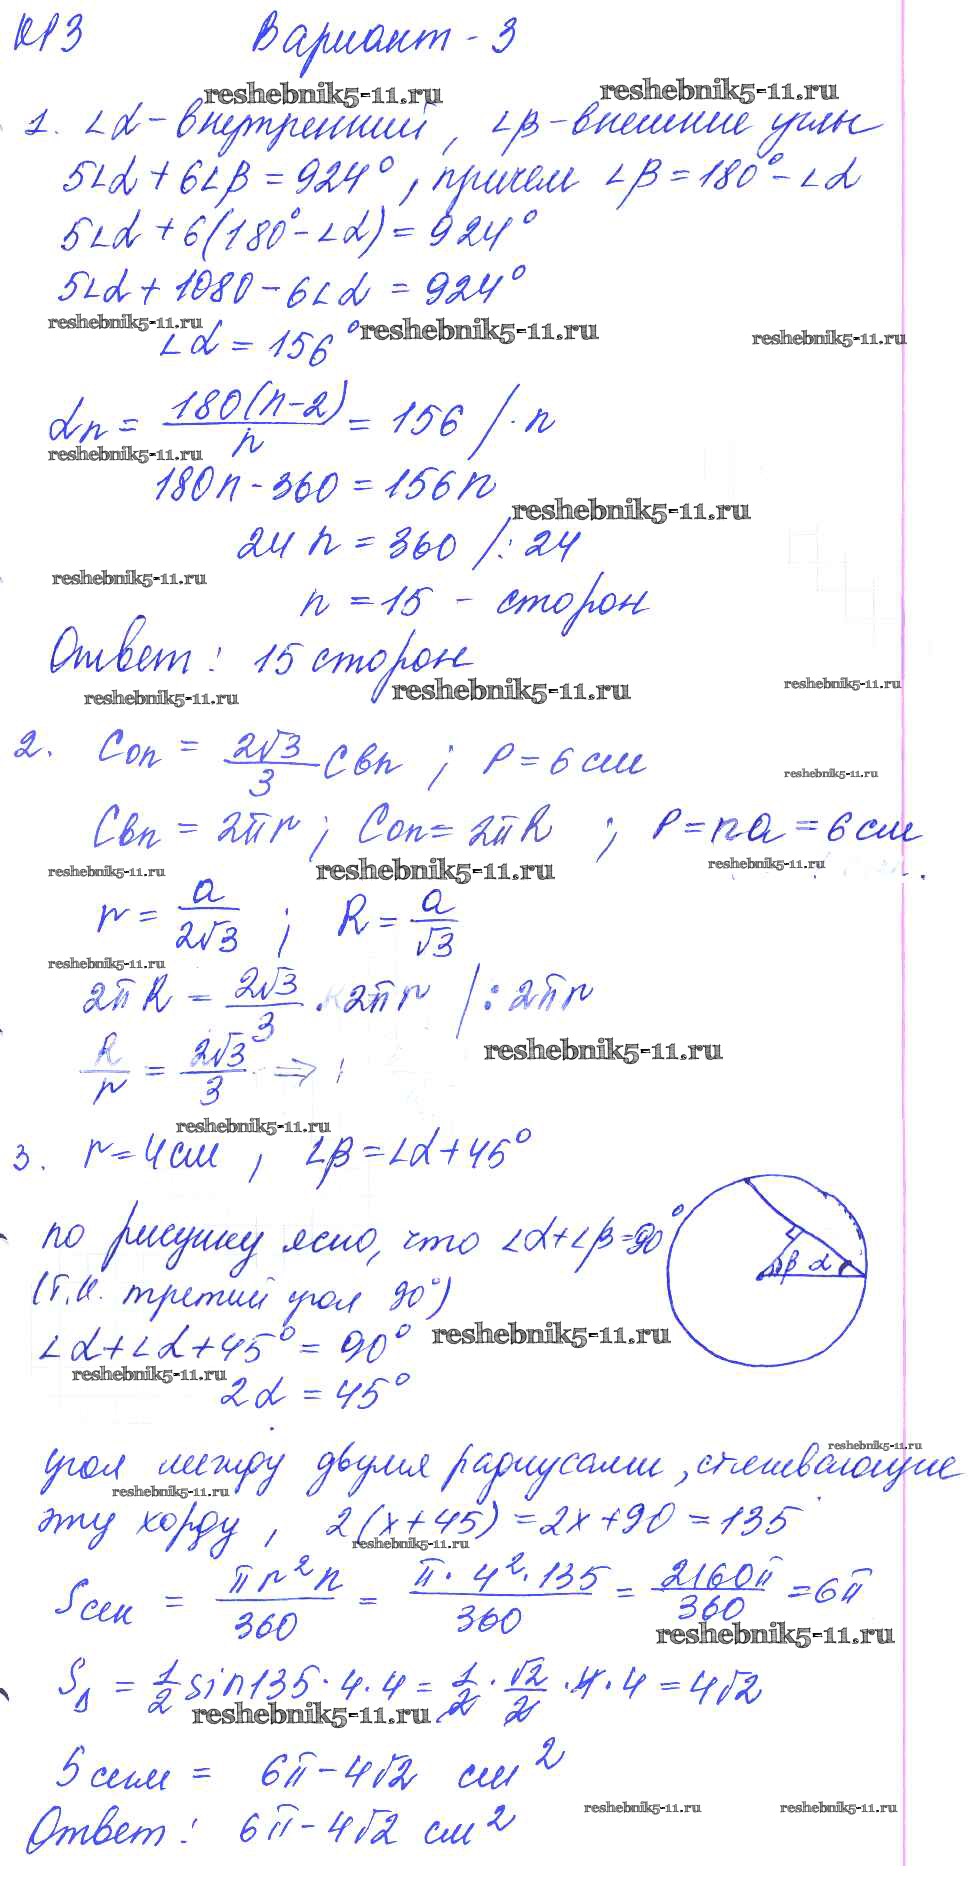 КР3 Вариант - 3
reshebnik5-11.ru reshebnik5-11.ru
1. ∠α - внутренний, ∠β - внешние углы
5∠α + 6∠β = 924°, причем ∠β = 180° - ∠α
5∠α + 6(180° - ∠α) = 924°
5∠α + 1080 - 6∠α = 924°
reshebnik5-11.ru reshebnik5-11.ru reshebnik5-11.ru
∠α = 156°
αn = 180(n-2)/n = 156 /·n
reshebnik5-11.ru
180n - 360 = 156n
reshebnik5-11.ru
24n = 360 /:24
reshebnik5-11.ru
n = 15 - сторон
Ответ: 15 сторон
reshebnik5-11.ru reshebnik5-11.ru reshebnik5-11.ru
2. Cоп = 2√3/3 Cвп ; P = 6 см
reshebnik5-11.ru
Cвп = 2πr ; Cоп = 2πR ; P = na = 6 см
reshebnik5-11.ru reshebnik5-11.ru reshebnik5-11.ru
r = a/2√3 ; R = a/√3
reshebnik5-11.ru
2πR = 2√3/3 · 2πr /:2πr
reshebnik5-11.ru
R/r = 2√3/3 ⇒
reshebnik5-11.ru
3. r = 4 см, ∠β = ∠α + 45°
по рисунку ясно, что ∠α + ∠β = 90°
β α
(т.к. третий угол 90°)
reshebnik5-11.ru
∠α + ∠α + 45° = 90°
reshebnik5-11.ru
2α = 45°
reshebnik5-11.ru
угол между двумя радиусами, стягивающие
reshebnik5-11.ru
эту хорду, 2(x+45) = 2x + 90 = 135
reshebnik5-11.ru
Sсек = πr²n/360 = π·4²·135/360 = 2160π/360 = 6π
reshebnik5-11.ru
S△ = 1/2 sin135·4·4 = 1/2 · √2/2 · 4·4 = 4√2
reshebnik5-11.ru
Sсегм = 6π - 4√2 см²
reshebnik5-11.ru reshebnik5-11.ru
Ответ: 6π - 4√2 см²